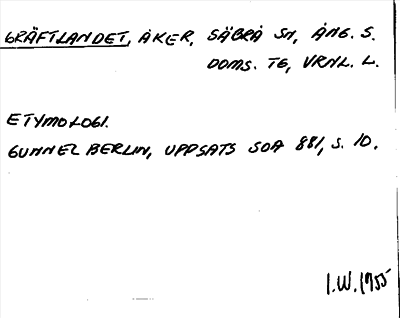 GRÄFTLANDET, ÅKER, SÄBRÅ SN, ÅNG. S.
DOMS. TG, VRNL. L.
ETYMOLOGI.
GUNNEL BERLIN, UPPSATS SOA 881, S. 10.
I.W. 1955